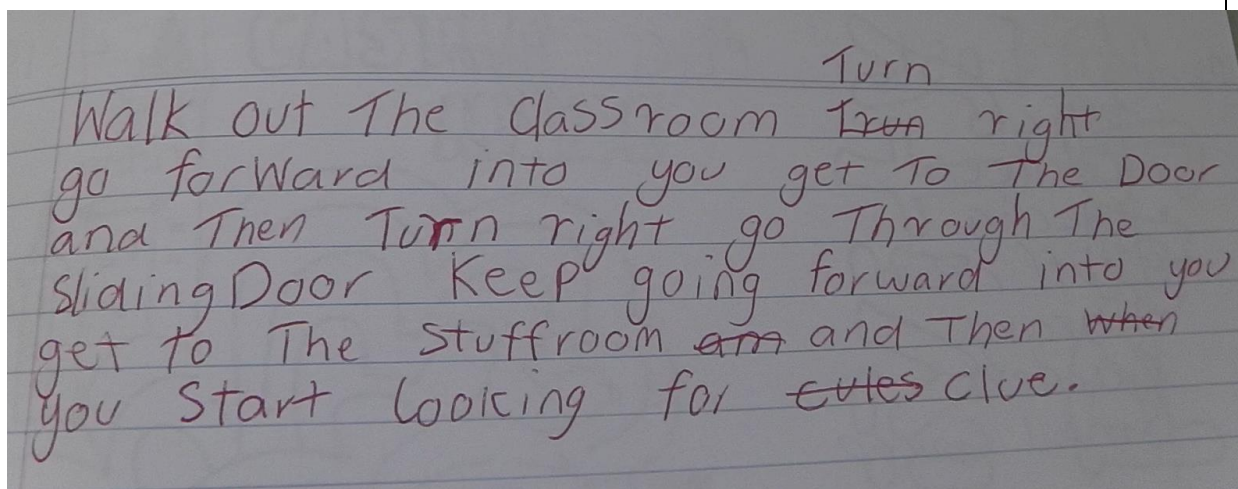 Turn
Walk out The Classroom Trun right
go forward into you get To The Door
and Then Turn right go Through The
Sliding Door Keep going forward into you
get to The Stuffroom am and Then when
you Start looking for cules Clue.